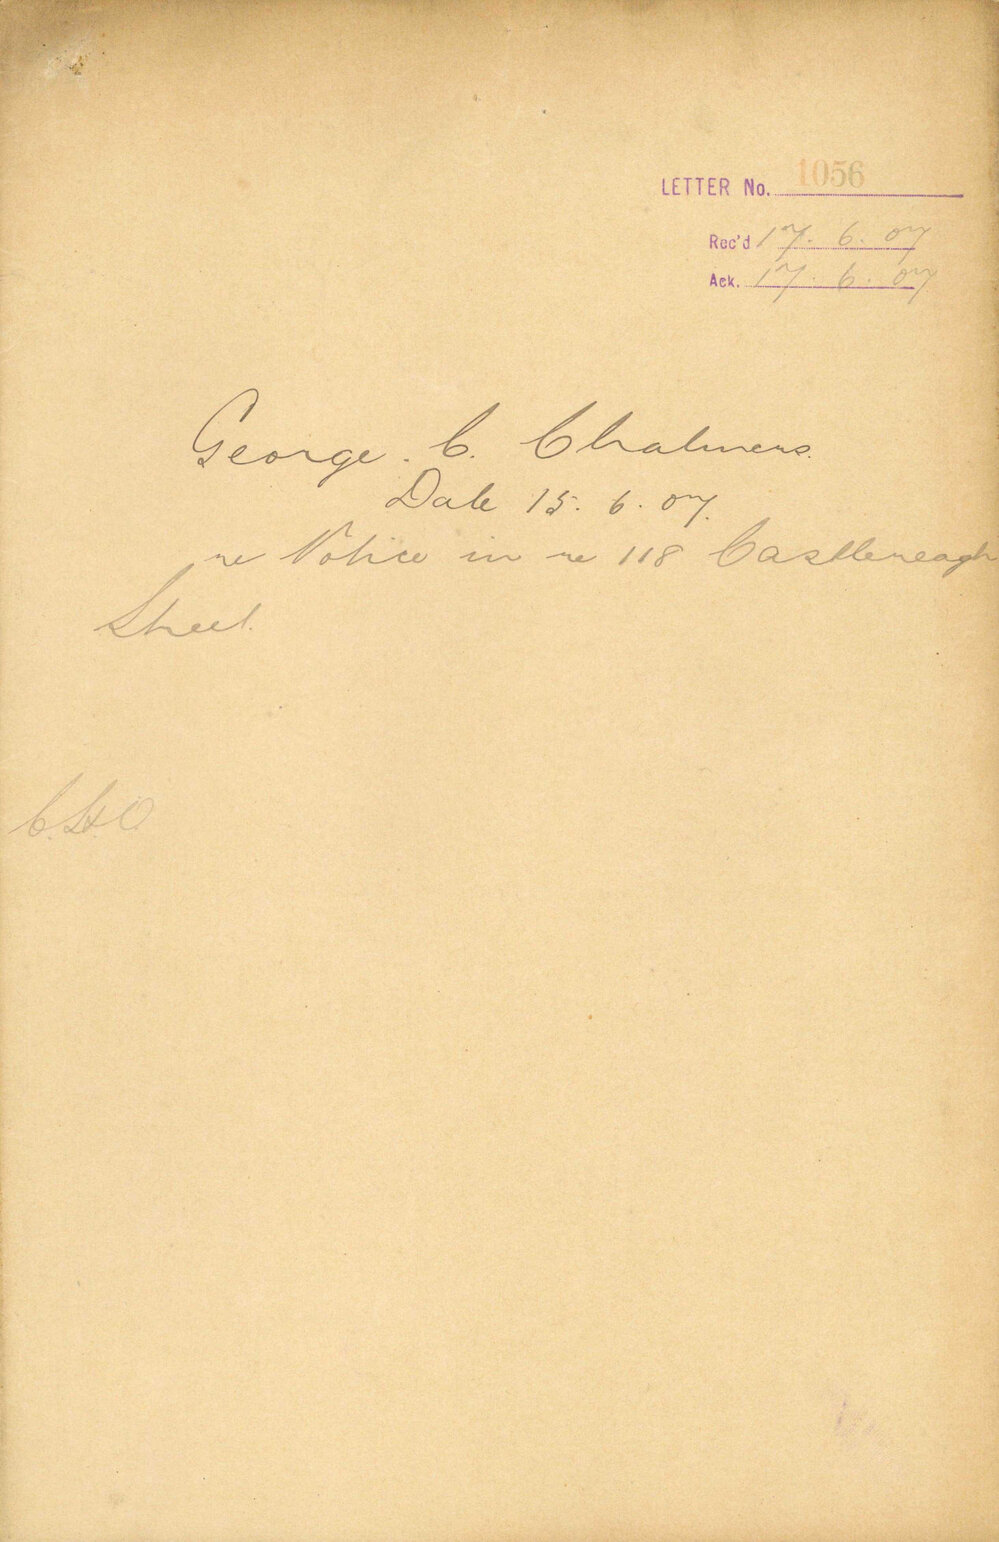 LETTER No. 1056
Rec'd 17. 6. 07
Ack. 17. 6. 07
George. C. Chalmers.
Date 15. 6. 07.
re Notice in re 118 Castlereagh
Street.